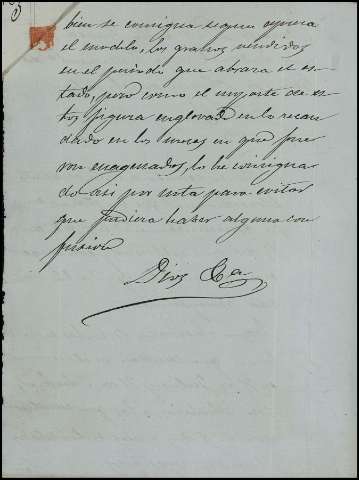 bien se consigna segun espresa
el modelo, los granos vendidos
en el periodo que abraza el es-
tado, pero como el importe de es-
tos figura englovado en lo recau
dado en los meses en que fue
ron enagenados, lo he consigna
do asi por nota para evitar
que pudiera haber alguna con
fusion
Dios &a